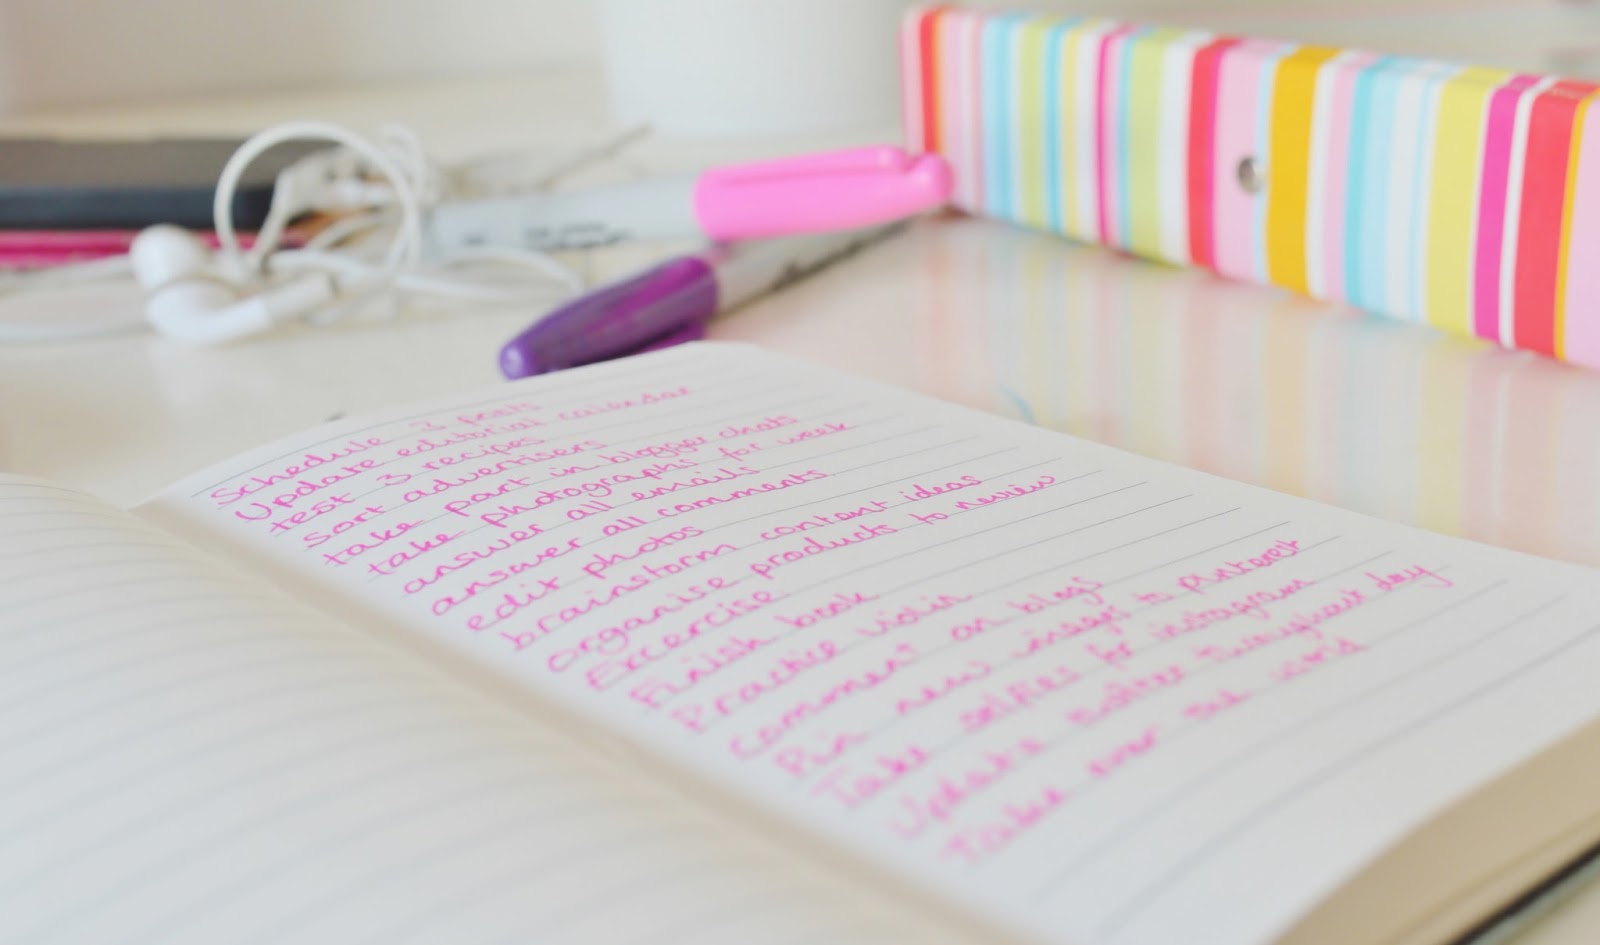 Schedule 3 posts
Update editorial calendar
test 3 recipes
sort advertisers
take part in blogger chats
take photographs for week
answer all emails
answer all comments.
edit photos
brainstorm content ideas
organise products to review
Excercise
Finish book
Practice violin
Comment on blogs
Pin new images to pinterest
Take selfies for instagram
Update twitter throughout day
Take over the world